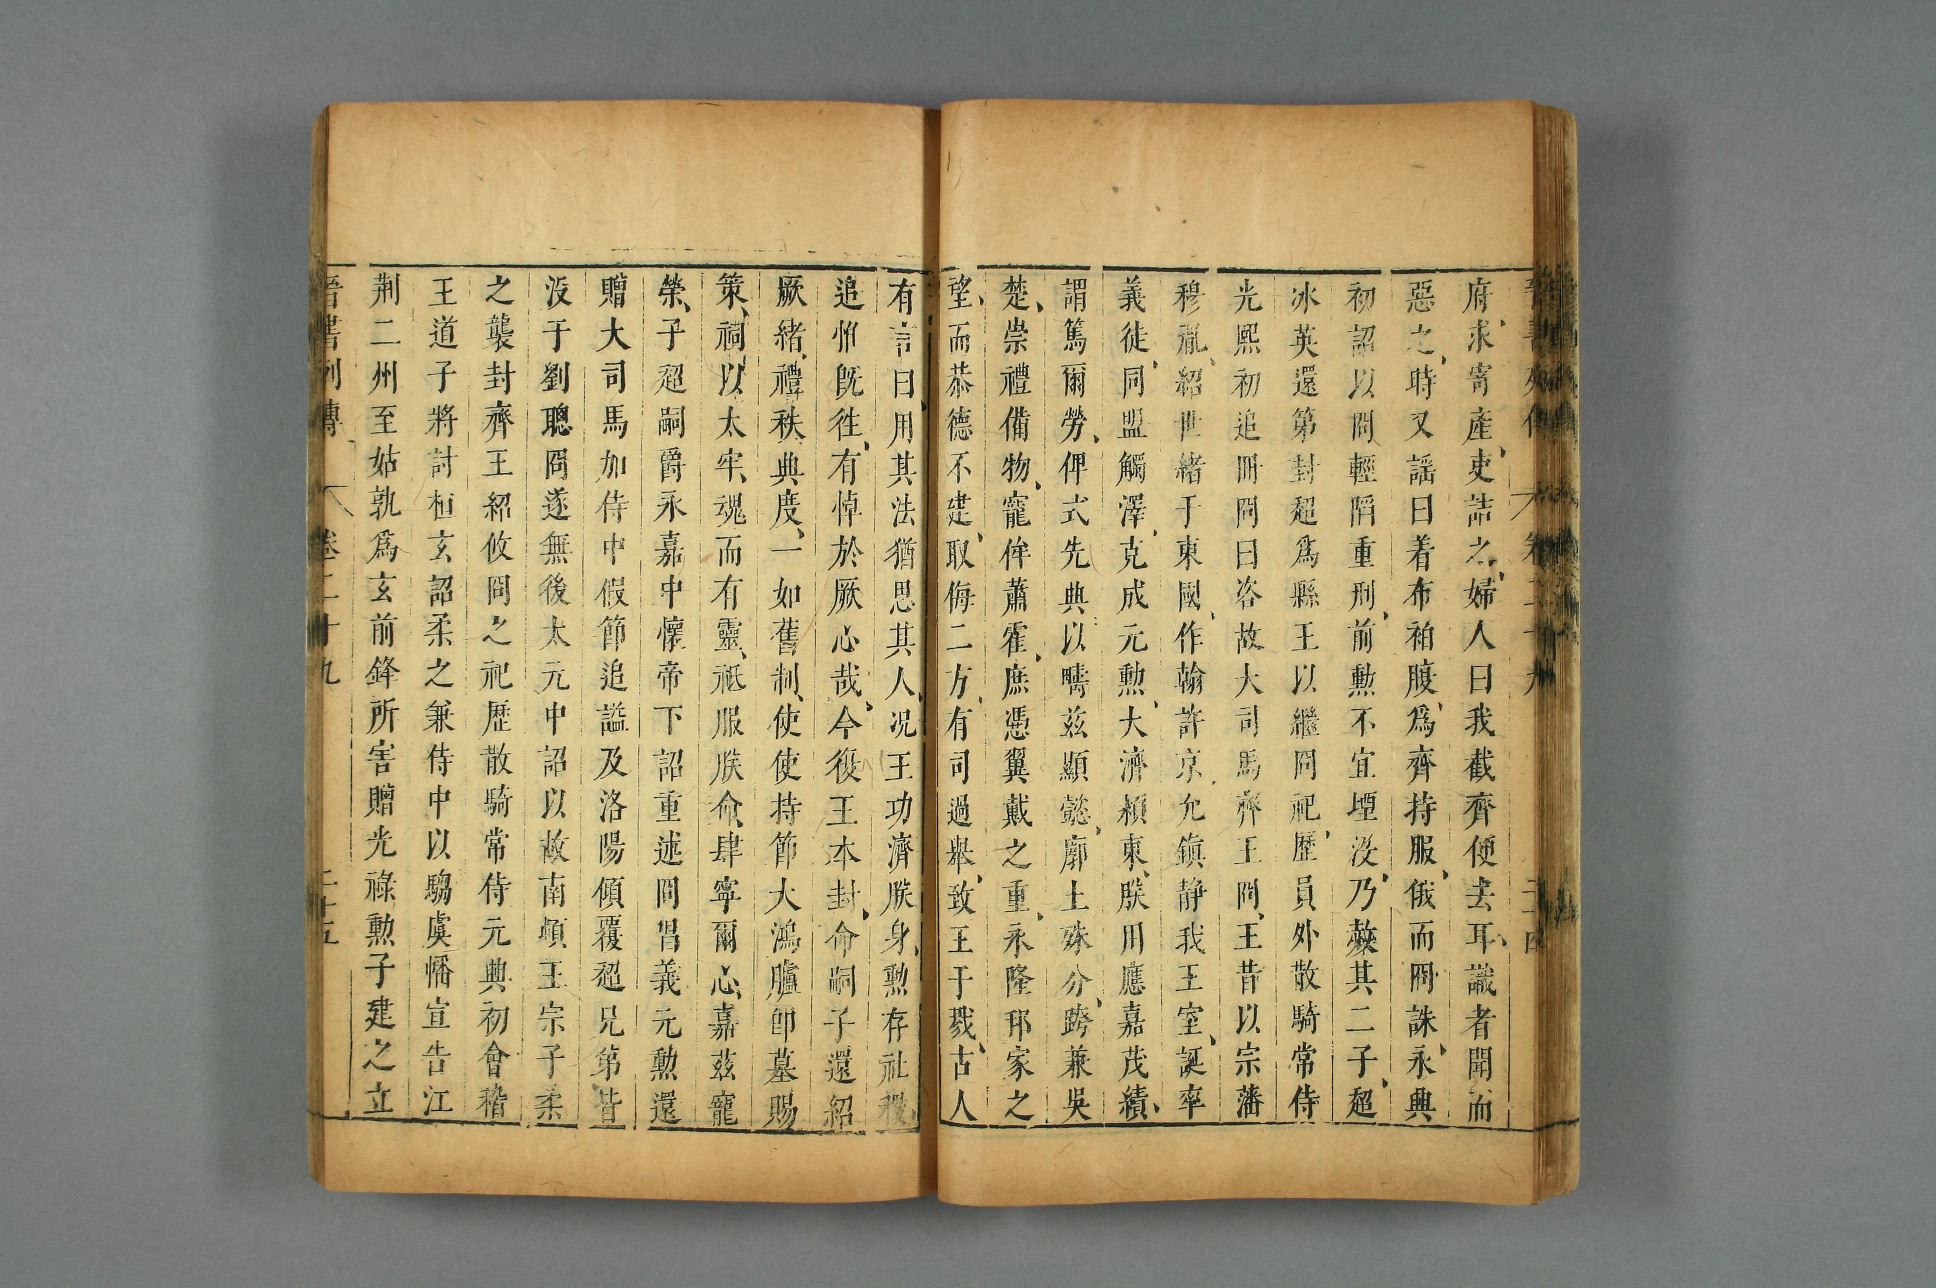 府求寄產吏詰之婦人曰我截齊便去耳識者聞而
惡之時又謡曰着布袙腹爲齊持服俄而冏誅永興
初詔以冏輕陷重刑前勲不宜堙没乃赦其二子超
冰英還第封超爲縣王以繼冏祀歷員外散騎常侍
光熙初追冊冏曰咨故大司馬齊王冏王昔以宗藩
穆胤紹世緒于東國作翰許京允鎮静我王室誕率
義徒同盟觸澤克成元勲大濟潁東朕用應嘉茂績
謂篤爾勞俾式先典以疇兹顯懿廓土殊分跨兼吳
楚崇禮備物寵侔蕭霍庶憑翼戴之重永隆邦家之
望而恭德不建取侮二方有司過舉致王于戮古人
有言曰用其法猶思其人况王功濟朕身勲存社稷
追惟既徃有悼於厥心哉今復王本封命嗣子還紹
厥緒禮秩典度一如舊制使使持節大鴻臚即墓賜
策祠以太牢魂而有靈祗服朕命肆寧爾心嘉兹寵
榮子超嗣爵永嘉中懷帝下詔重述冏唱義元勲還
贈大司馬加侍中假節追謚及洛陽傾覆超兄弟皆
没于劉聰冏遂無後太元中詔以故南頓王宗子柔
之襲封齊王紹攸冏之祀歷散騎常侍元興初會稽
王道子將討桓玄詔柔之兼侍中以騶虞幡宣告江
荆二州至姑孰爲玄前鋒所害贈光祿勲子建之立
晋書列傳 卷二十九 二十五